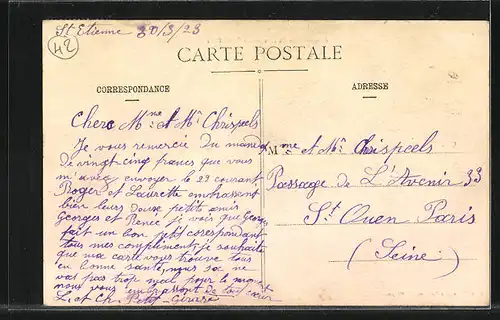 St Etienne 30/3/23
42
CARTE POSTALE
CORRESPONDANCE
ADRESSE
Cherc Mme et Mr Chrispeels
Je vous remercie du mandat
de vingt cinq francs que vous
m'avez envoyer le 23 courant
Roger et Laurette embrassent
bien leurs douse petits amis
Georges et Renée je vois que Georges
fait un bon petit corespondant
tous mes complément je souhaite
que ma carte vous trouve tous
en bonne santé, nous sa ne
vas pas trop mal pour le moment
nous vous embrassont de tout cœur
L. et Ch. Petit-
Mme et Mr Chrispeels
Passage de L'Avenir 33
St Ouen Paris
(Seine)